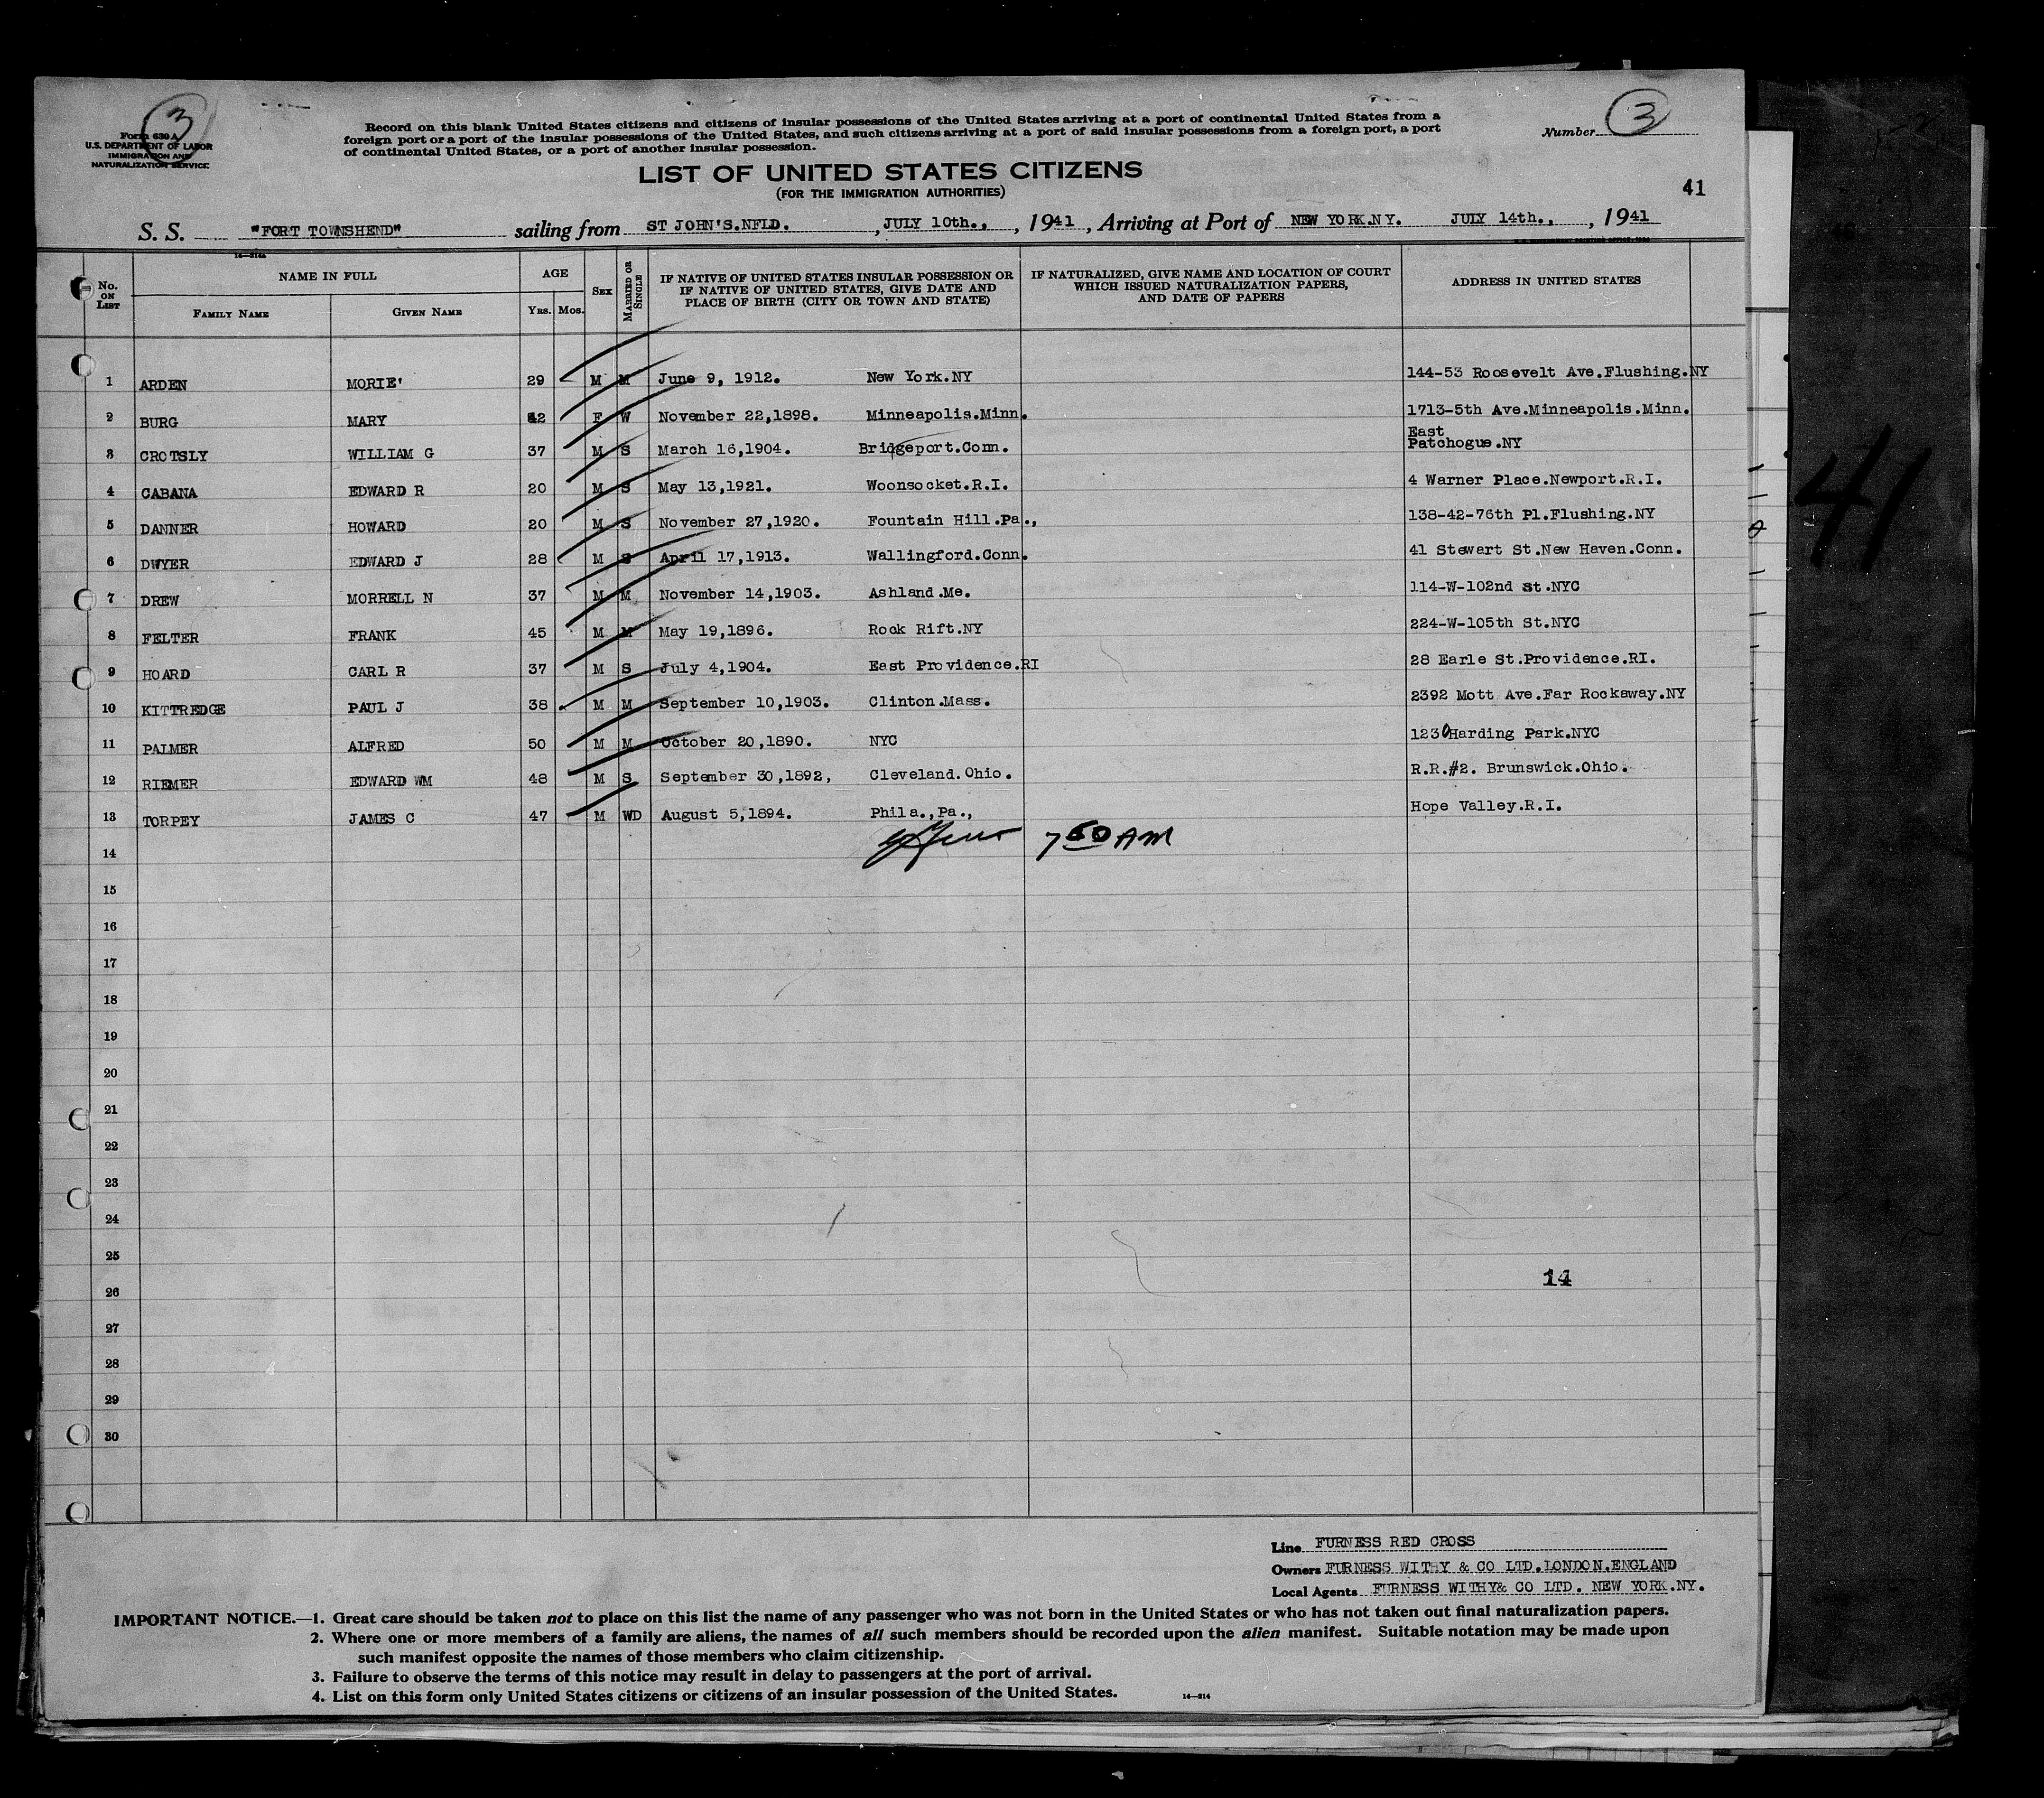 3
Form 630 A
U.S. DEPARTMENT OF LABOR
IMMIGRATION AND
NATURALIZATION SERVICE
Record on this blank United States citizens and citizens of insular possessions of the United States arriving at a port of continental United States from a
foreign port or a port of the insular possessions of the United States, and such citizens arriving at a port of said insular possessions from a foreign port, a port
of continental United States, or a port of another insular possession.
Number 3
LIST OF UNITED STATES CITIZENS
(FOR THE IMMIGRATION AUTHORITIES)
41
S. S. "FORT TOWNSHEND" sailing from ST JOHN'S.NFLD. , JULY 10th., , 1941 , Arriving at Port of NEW YORK.NY. JULY 14th., , 1941
14—214a
No. ON LIST
NAME IN FULL
FAMILY NAME GIVEN NAME
AGE
YRS. MOS.
SEX
MARRIED OR SINGLE
IF NATIVE OF UNITED STATES INSULAR POSSESSION OR
IF NATIVE OF UNITED STATES, GIVE DATE AND
PLACE OF BIRTH (CITY OR TOWN AND STATE)
IF NATURALIZED, GIVE NAME AND LOCATION OF COURT
WHICH ISSUED NATURALIZATION PAPERS,
AND DATE OF PAPERS
ADDRESS IN UNITED STATES
1 ARDEN MORIE' 29 M M June 9, 1912. New York.NY 144-53 Roosevelt Ave.Flushing.NY
2 BURG MARY 42 F W November 22,1898. Minneapolis.Minn. 1713-5th Ave.Minneapolis.Minn.
3 CROTSLY WILLIAM G 37 M S March 16,1904. Bridgeport.Conn. East Patchogue.NY
4 CABANA EDWARD R 20 M S May 13,1921. Woonsocket.R.I. 4 Warner Place.Newport.R.I.
5 DANNER HOWARD 20 M S November 27,1920. Fountain Hill.Pa., 138-42-76th Pl.Flushing.NY
6 DWYER EDWARD J 28 M S April 17,1913. Wallingford.Conn. 41 Stewart St.New Haven.Conn.
7 DREW MORRELL N 37 M M November 14,1903. Ashland.Me. 114-W-102nd St.NYC
8 FELTER FRANK 45 M M May 19,1896. Rock Rift.NY 224-W-105th St.NYC
9 HOARD CARL R 37 M S July 4,1904. East Providence.RI 28 Earle St.Providence.RI.
10 KITTREDGE PAUL J 38 M M September 10,1903. Clinton.Mass. 2392 Mott Ave.Far Rockaway.NY
11 PALMER ALFRED 50 M M October 20,1890. NYC 1230 Harding Park.NYC
12 RIEMER EDWARD WM 48 M S September 30,1892, Cleveland.Ohio. R.R.#2. Brunswick.Ohio.
13 TORPEY JAMES C 47 M WD August 5,1894. Phila.,Pa., Hope Valley.R.I.
14 7 50 AM
15
16
17
18
19
20
21
22
23
24
25
14
26
27
28
29
30
41
Line FURNESS RED CROSS
Owners FURNESS WITHY & CO LTD.LONDON.ENGLAND
Local Agents FURNESS WITHY& CO LTD. NEW YORK.NY.
IMPORTANT NOTICE.—1. Great care should be taken not to place on this list the name of any passenger who was not born in the United States or who has not taken out final naturalization papers.
2. Where one or more members of a family are aliens, the names of all such members should be recorded upon the alien manifest. Suitable notation may be made upon
such manifest opposite the names of those members who claim citizenship.
3. Failure to observe the terms of this notice may result in delay to passengers at the port of arrival.
4. List on this form only United States citizens or citizens of an insular possession of the United States.
14—214